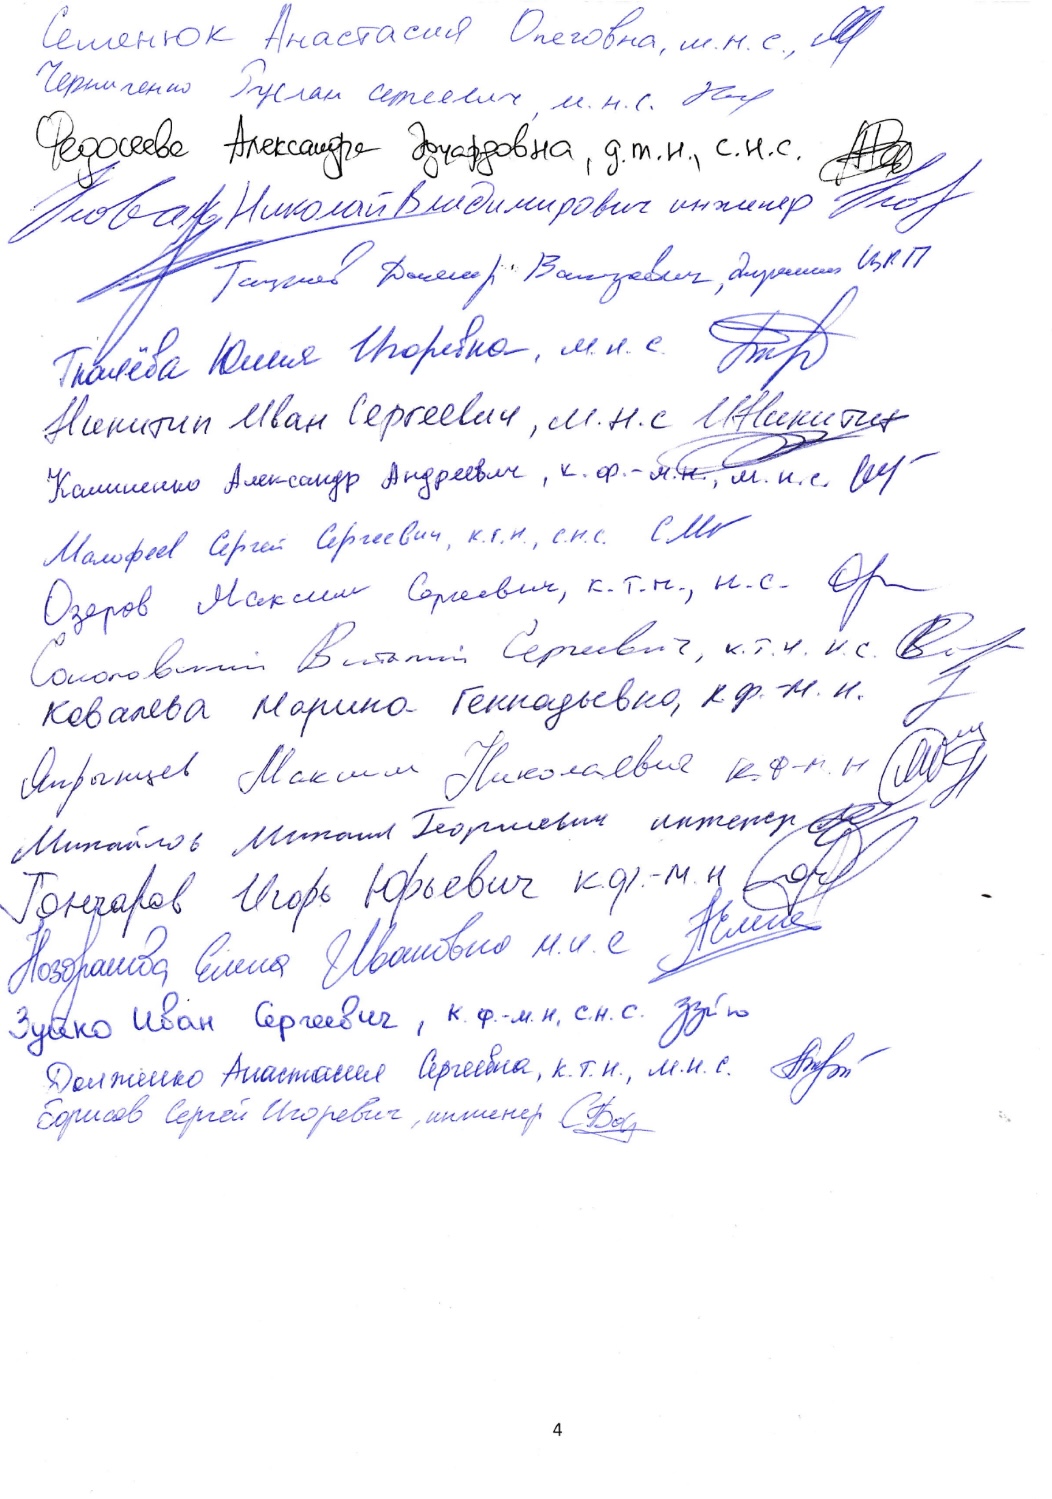 Семенюк Анастасия Олеговна, м.н.с.,
Черниченко Руслан Сергеевич, м.н.с.
Федосеева Александра Эдуардовна, д.т.н., с.н.с.
Николай Владимирович инженер
Вальдович, директор ЦКП
Ткачёва Юлия Игоревна, м.н.с.
Никитин Иван Сергеевич, м.н.с ИНикитин
Калиненко Александр Андреевич, к.ф.-м.н., м.н.с.
Малофеев Сергей Сергеевич, к.т.н., с.н.с.
Озеров Максим Сергеевич, к.т.н., н.с.
Виталий Сергеевич, к.т.н. н.с.
Ковалева Марина Геннадьевна, к.ф.-м.н.
Япрынцев Максим Николаевич к.ф-м.н
Михайлов Михаил Георгиевич инженер
Гончаров Игорь Юрьевич к.ф.-м.н
Ноздрачева Елена Ивановна м.н.с
Зуйко Иван Сергеевич, к.ф.-м.н, с.н.с.
Долженко Анастасия Сергеевна, к.т.н., м.н.с.
Борисов Сергей Игоревич, инженер
4